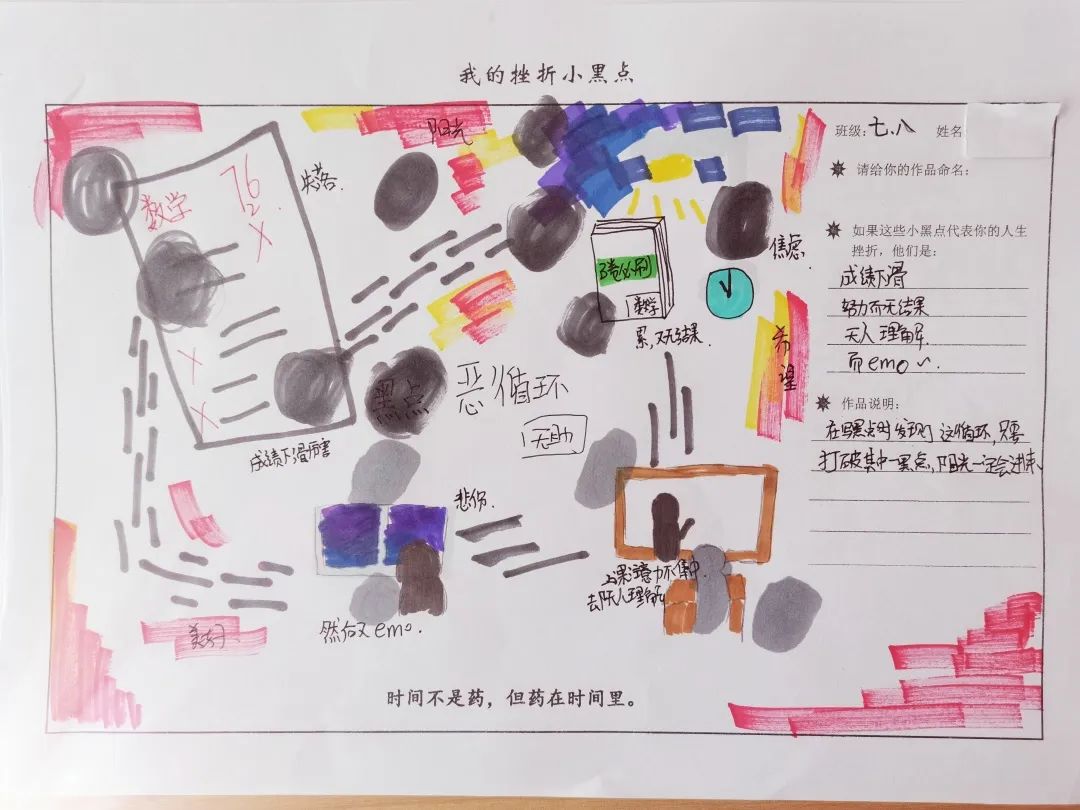 我的挫折小黑点
班级:七.八 姓名
请给你的作品命名:
如果这些小黑点代表你的人生
挫折,他们是:
成绩下滑
努力而无结果
无人理解.
而emo~
作品说明:
在画黑点时发现了这循环,只要
打破其中一黑点,阳光一定会进来.
阳光
失落.
数学
76
2
焦虑.
卷必刷
数学
累,又无结果.
希望
黑点
恶循环
无助
成绩下滑厉害
悲伤.
上课注意力不集中.
去除人理解
然后又emo.
美好
时间不是药,但药在时间里。